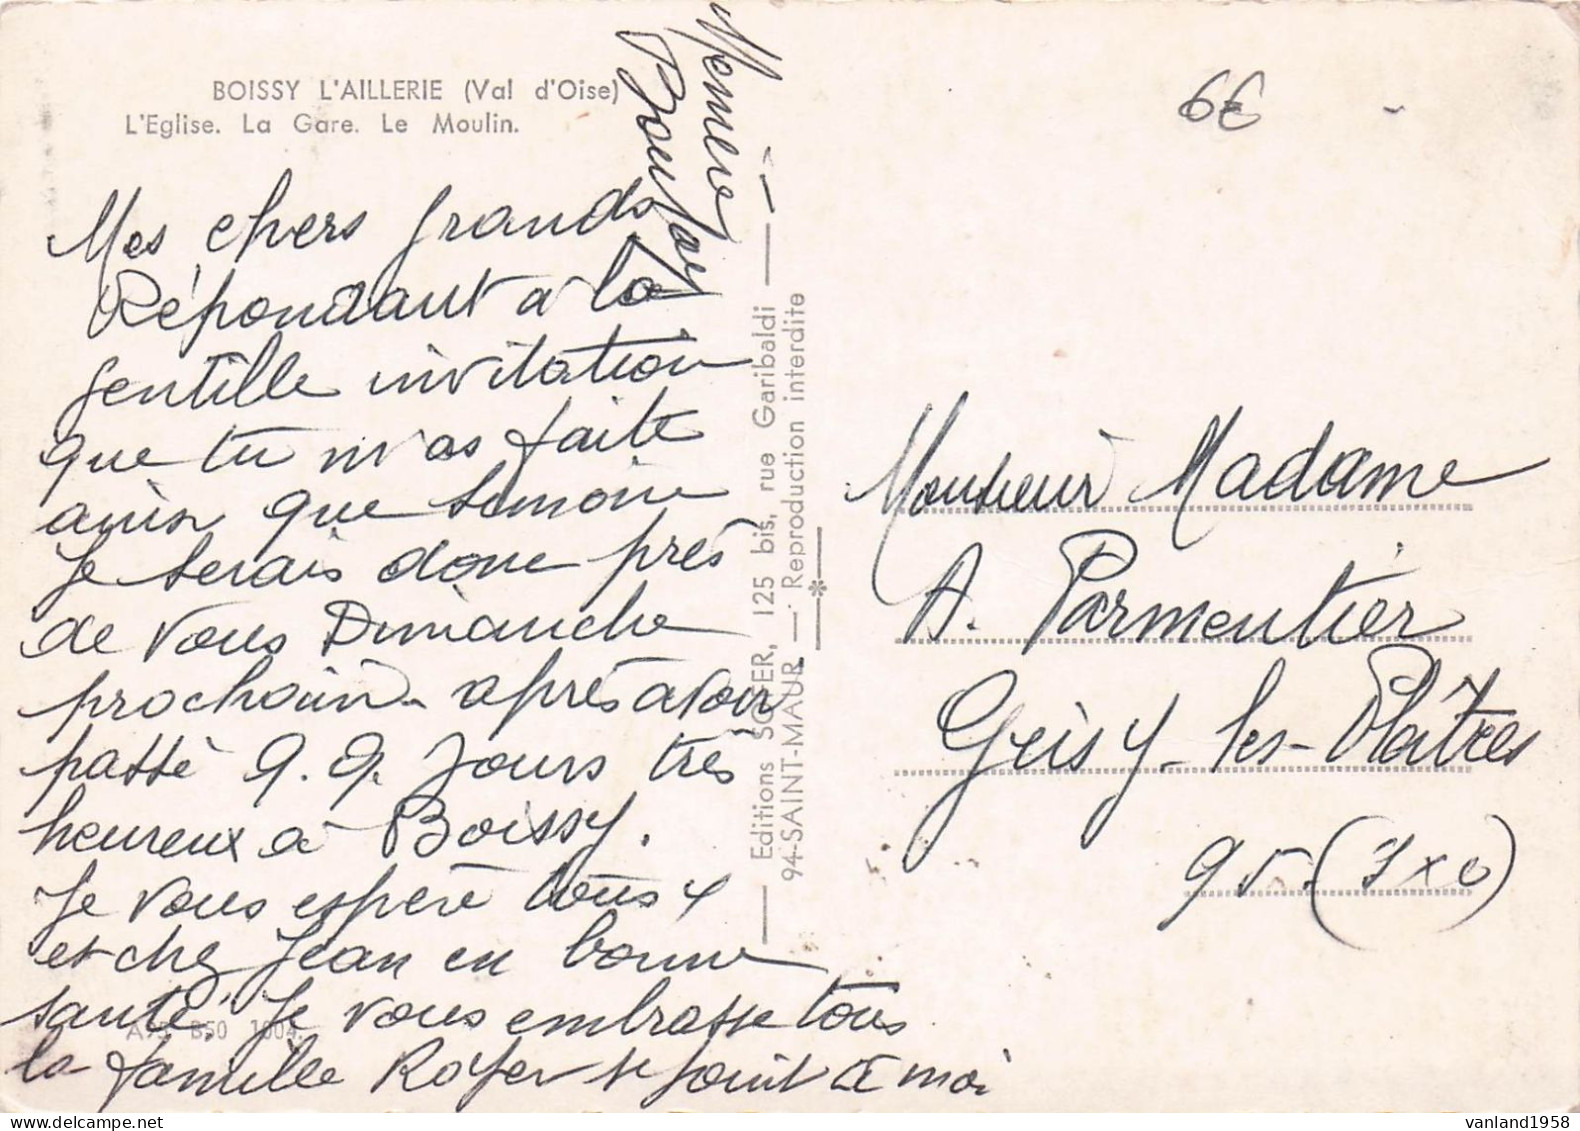 BOISSY L'AILLERIE (Val d'Oise)
L'Eglise. La Gare. Le Moulin.
Mes chers grands
Répondant a la
gentille invitation
que tu m'as faite
ainsi que Simone
je serais donc près
de vous Dimanche
prochain - après avoir
passé q. q. jours très
heureux à Boissy.
Je vous espère tous
et chez Jean en bonne
santé. Je vous embrasse tous
la famille Royer se joint à moi
Memere
A95 B50 1004.
Editions SOGER, 125 bis, rue Garibaldi
94-SAINT-MAUR — Reproduction interdite
6€
Monsieur Madame
A. Parmentier
Geisy-les-Plâtres
95. (
vanland1958